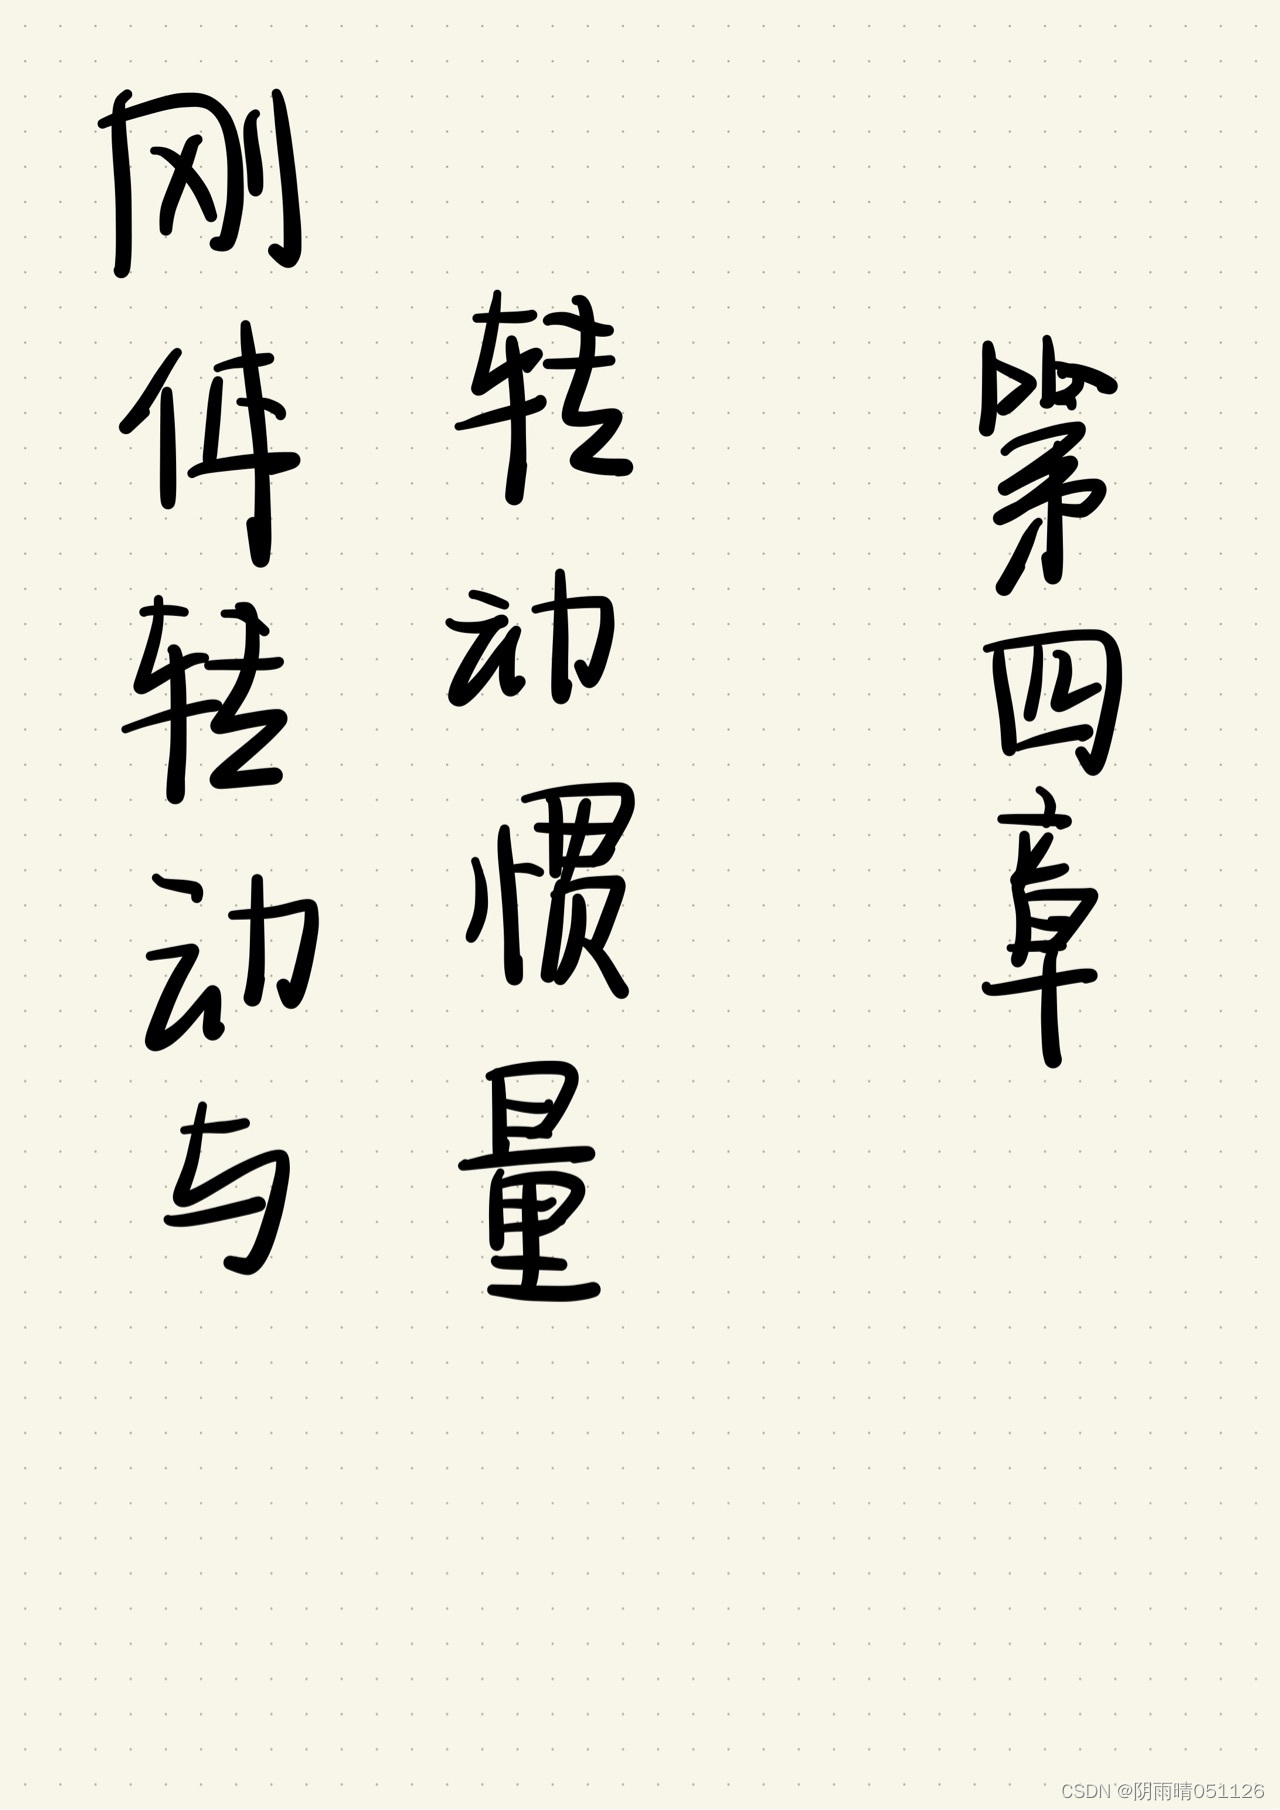 第四章
刚体转动与
转动惯量
CSDN @阴雨晴051126